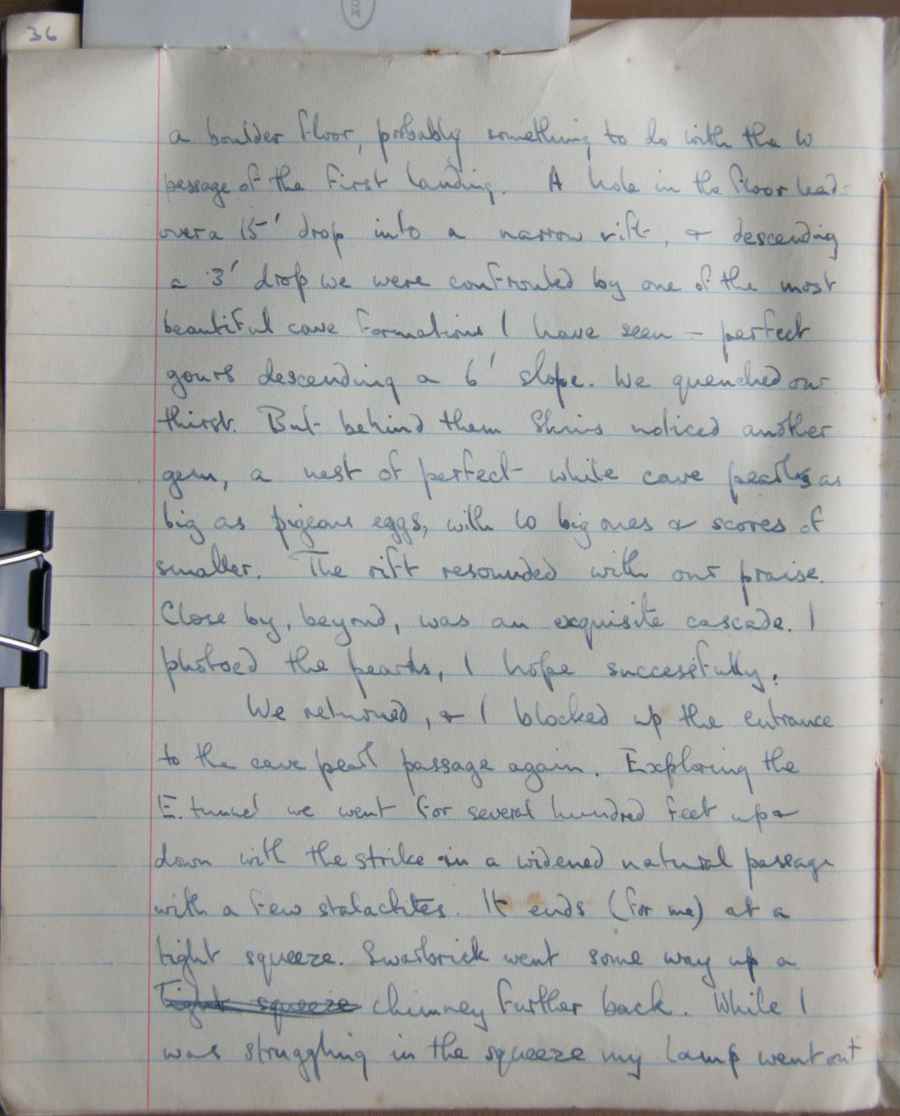 36
a boulder floor, probably something to do with the W
passage of the First Landing. A hole in the floor lead
over a 15' drop into a narrow rift, & descending
a 3' drop we were confronted by one of the most
beautiful cave formations I have seen - perfect
gours descending a 6' slope. We quenched our
thirst. But behind them noticed another
gem, a nest of perfect white cave pearls as
big as pigeons eggs, with 10 big ones & scores of
smaller. The rift resounded with our praise.
Close by, beyond, was an exquisite cascade. I
photoed the pearls, I hope successfully.
We returned, & I blocked up the entrance
to the cave pearl passage again. Exploring the
E. tunnel we went for several hundred feet up &
down with the strike in a widened natural passage
with a few stalactites. It ends (for me) at a
tight squeeze. Swarbrick went some way up a
Tight squeeze chimney further back. While I
was struggling in the squeeze my lamp went out